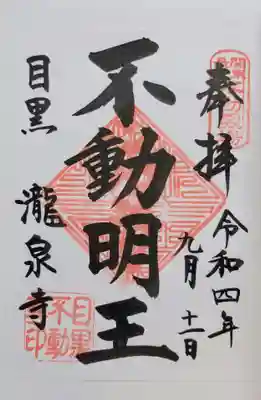 奉拝
令和四年
九月
十一日
不動明王
目黒
瀧泉寺
目黒
不動
印